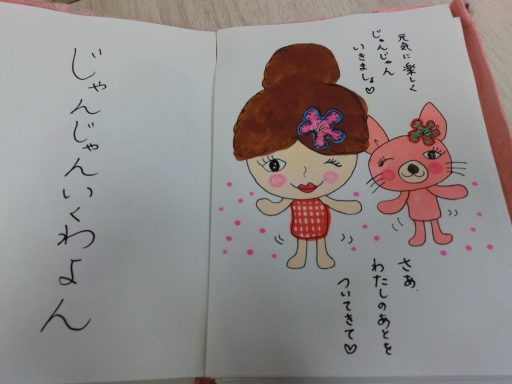 元気に楽しく
じゃんじゃん
いきましょ♡
さあ
わたしのあとを
ついてきて♡
じゃんじゃんいくわよん